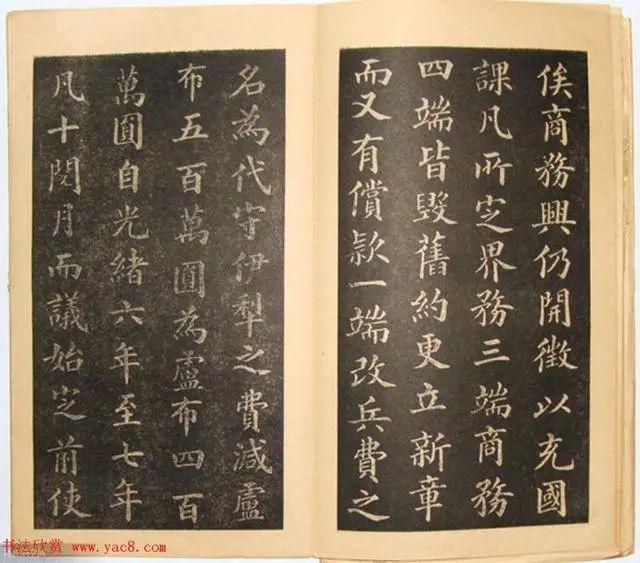 俟商務興仍開徵以充國
課凡所定界務三端商務
四端皆毀舊約更立新章
而又有償款一端改兵費之
名為代守伊犁之費減盧
布五百萬圓為盧布四百
萬圓自光緒六年至七年
凡十閱月而議始定前使
书法欣赏 www.yac8.com